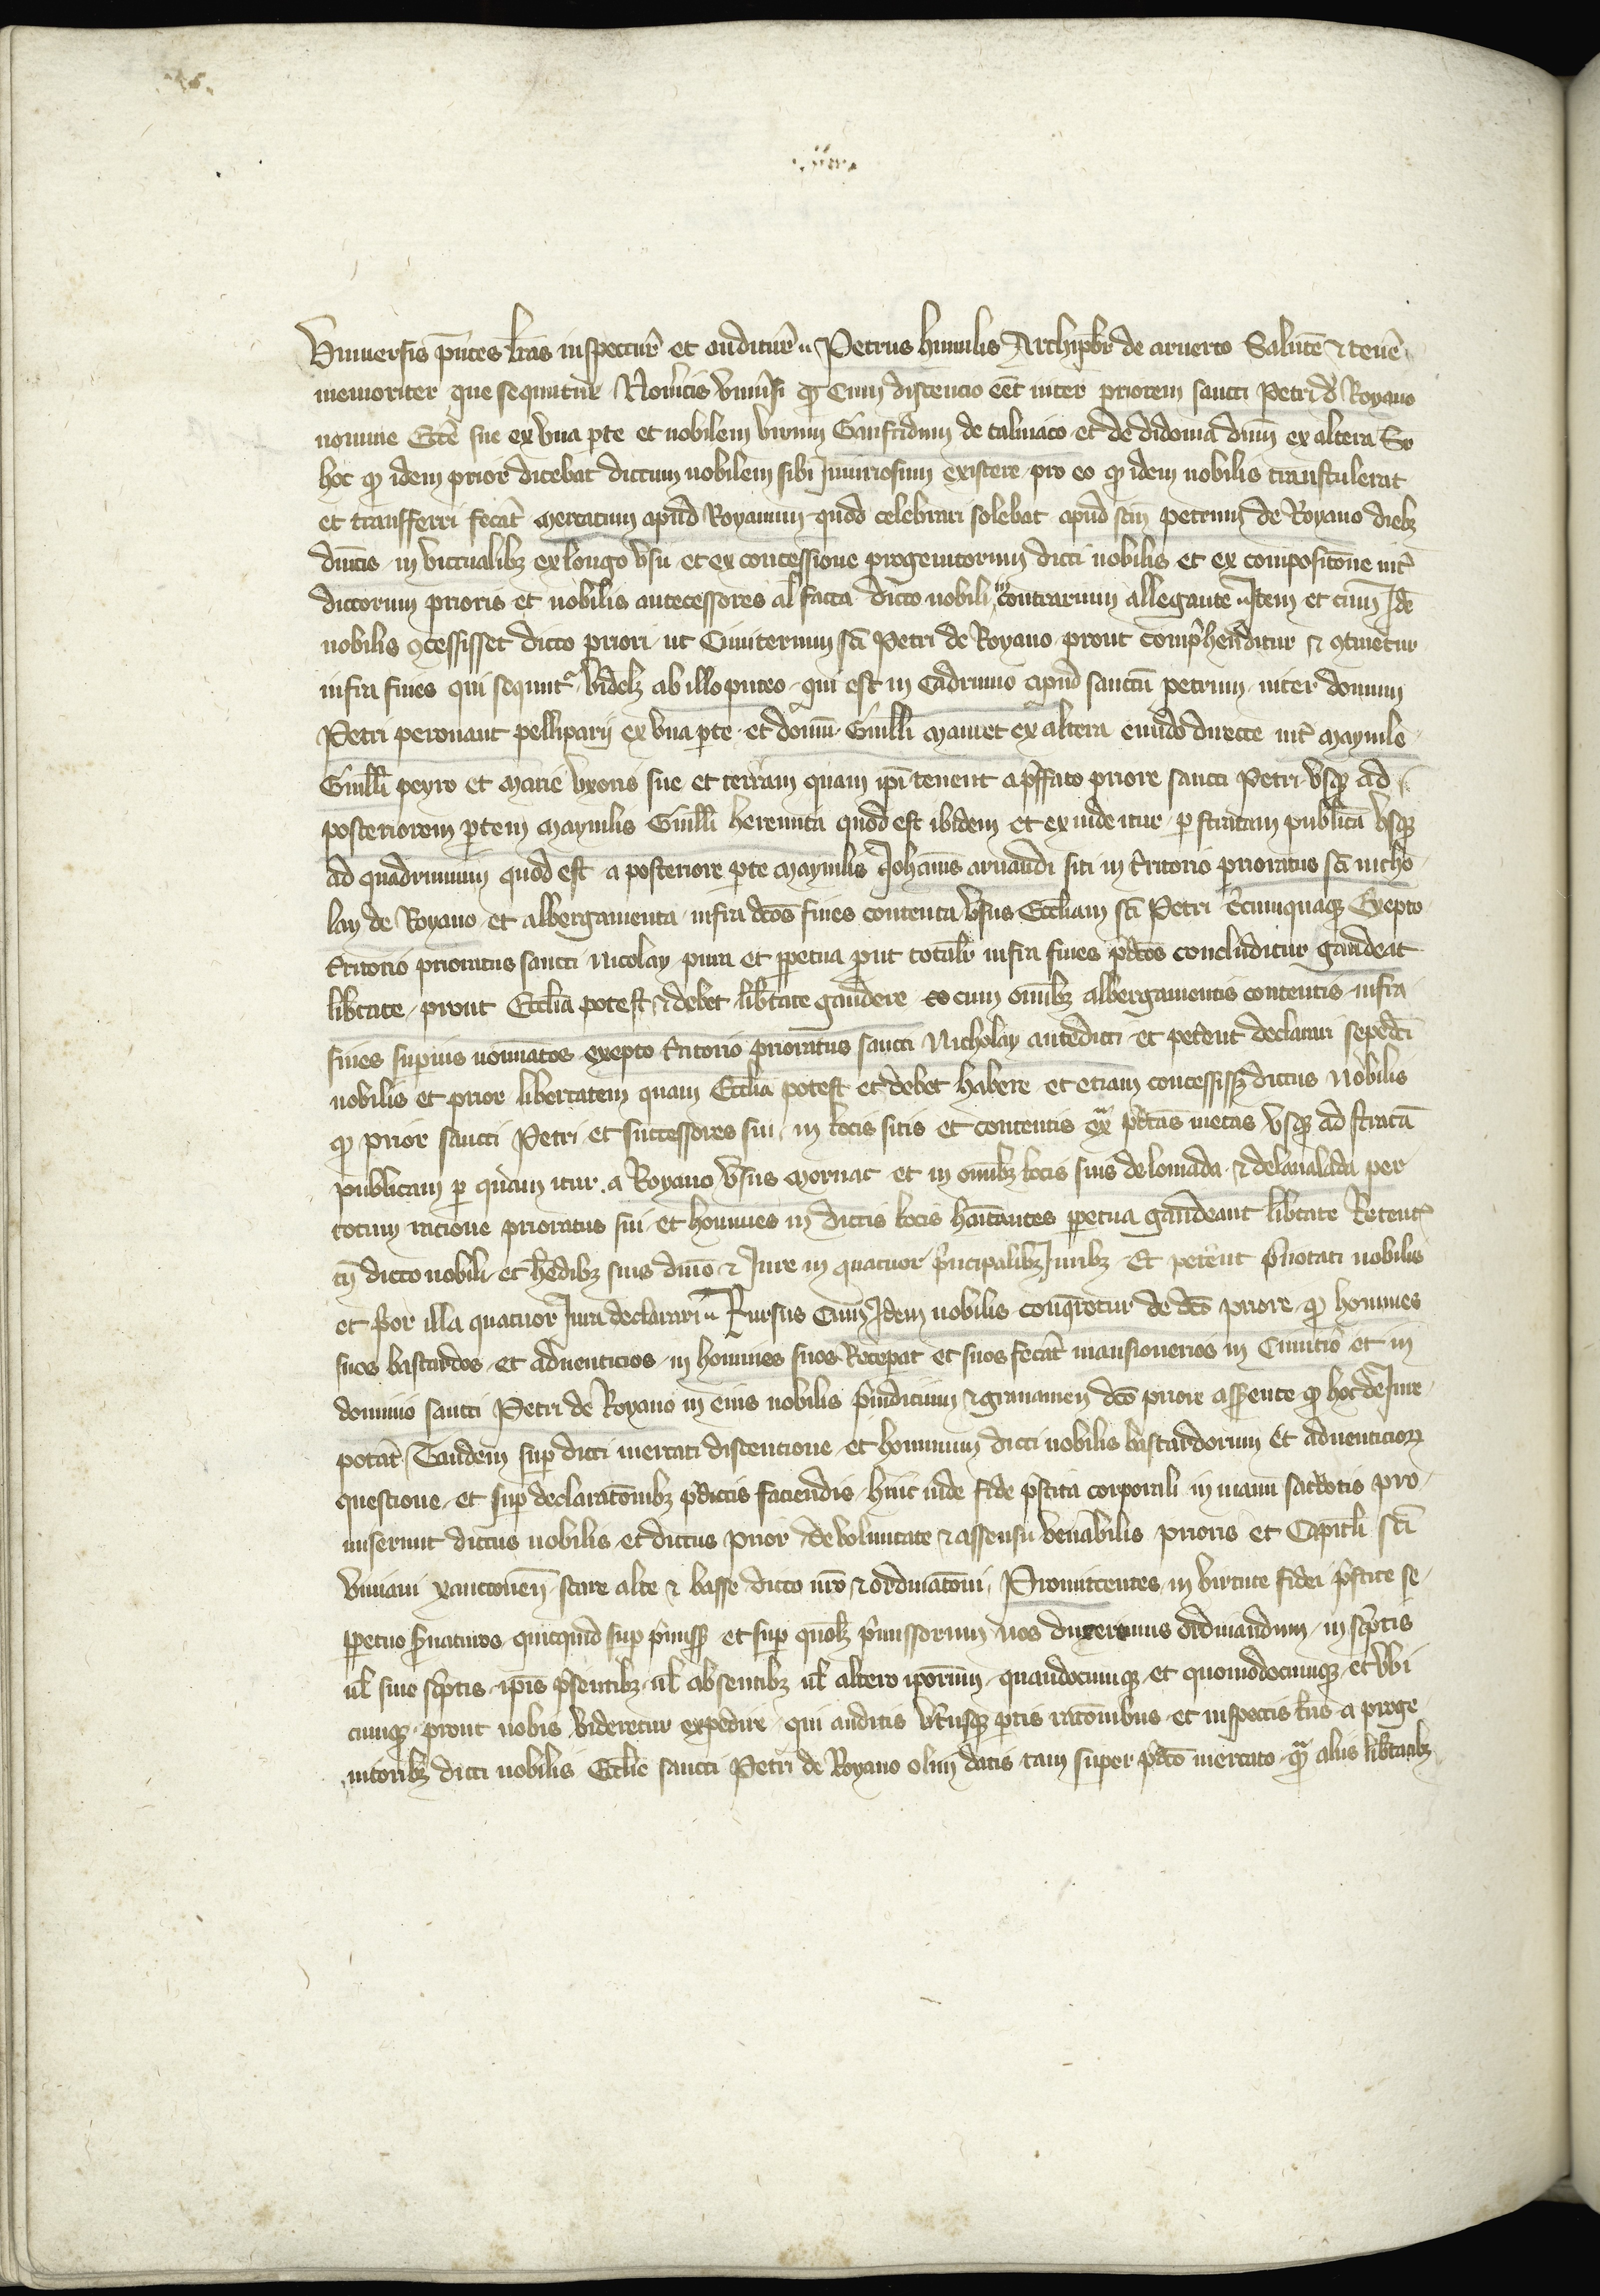 Vniuersis pn̄tes lr̄as inspectur̄ et auditur̄ Petrus humilis Archipb̄r de aruerto Salutē & tenē
memoriter que sequntur Noūitis vniūsi ꝙ Cum discencio eēt inter priorem sancti Petri d Royano
nomine Ecc̄e sue ex vna ꝑte et nobilem virum Gaufridum de talniaco et de didonia dn̄m ex altera Sr
hoc ꝙ idem prior dicebat dictum nobilem sibi Iniuriosum existere pro eo ꝙ idem nobilis transtulerat
et transfferri fecat̄ mercatum apud Royanum quod celebrari solebat apud sc̄m petrum de Royano diebȝ
dn̄icis in victualibȝ ex longo vsu et ex concessione progenitorum dicti nobilis et ex compositōne int̄
dictorum prioris et nobilis antecessores al̄ facta dicto nobili in contrarium allegante Item et cum Idē
nobilis ꝯcessisset dicto priori ut Cimiterium sc̄i Petri de Royano prout comp̄henditur & ꝯtinetur
infra fines qui sequntr videlȝ ab illo puteo qui est in Cadriuuo apud sanctū petrum inter domum
Petri peronaut pelliparij ex vna ꝑte et domū Guill̄i mainet ex altera eundo directe int̄ maynile
Guill̄i peyro et marie vxoris sue et terram quam ip̄i tenent a p̄ffato priore sancti Petri vsqȝ ad
posteriorem ꝑtem maynilis Guill̄i herenuta quod est ibidem et ex inde itur ꝑ stratam publicā vsqȝ
ad quadriuuum quod est a posteriore ꝑte maynilis Iohanīs arnaudi siti in t̄ritorio prioratus sc̄i nicho
lay de Royano et albergamenta infra dc̄os fines contenta v̄sus Eccl̄iam sc̄i Petri ec̄cumquaqȝ Exepto
t̄ritorio prioratus sancti nicolay pura et ꝑpetua prout total̄r infra fines p̄dc̄os concluditur gaudeat
lib̄tate prout Eccl̄ia potest & debet lib̄tate gaudere eo cum om̄ibȝ albergamentis contentis infra
fines supius nominatos exepto t̄ritorio prioratus sancti Nicholay antedicti et petent declarari sepedc̄i
nobilis et prior libertatem quam Eccl̄ia potest et debet habere et etiam concessissȝ dictus nobilis
ꝙ prior sancti Petri et successores sui in locis sitis et contentis ext̄ p̄dc̄as metas vsqȝ ad stratā
publicam ꝑ quam itur a Royano v̄sus mornac et in om̄ibȝ locis suis de lomada & delaualada per
totum racione prioratus sui et homines in dictis locis hac̄itantes ꝑpetua gaudeant lib̄tate Retent
tn̄ dicto nobili et h̄edibȝ suis dn̄io & Iure in quatuor p̄ncipalibȝ Iuribȝ Et petent p̄notati nobilis
et p̄or illa quatuor Iura declarari Rursus Cum Idem nobilis conqueretur de dc̄o priore ꝙ homines
suos bastardos et aduenticios in homines suos Recepat et suos fecat̄ mansionerios in Cimit̄io et in
dominio sancti Petri de Royano in eius nobilis p̄iudicium & grauamen dc̄o priore asserente ꝙ hoc de Iure
potat̄ Tandem suꝑ dicti mercati discencione et hominum dicti nobilis bastardorum Et aduenticiorꝝ
questione et suꝑ declaratōnibȝ p̄dictis faciendis hinc inde fide p̄stita corporali in manu sac̄dotis pro
miserunt dictus nobilis et dictus prior de voluntate & assensu ven̄abilis prioris et Capit̄li sc̄i
viuiani xanctonen̄ stare alte & basse dicto nr̄o & ordinatōni Promittentes in virtute fidei p̄stite se
ꝑpetuo s̄uaturos quicquid suꝑ p̄missȝ et suꝑ quolȝ p̄missorum nos duxerimus ordinandum in sc̄ptis
ul̄ sine sc̄ptis ip̄is p̄sentibȝ ul̄ absentibȝ ul̄ altero ip̄orum quandocumqȝ et quomodocumqȝ et vbi
cumqȝ prout nobis videretur expedire qui auditis vt̄usqȝ ꝑtis ratōnibus et inspectis lr̄is a proge
nitoribȝ dicti nobilis Eccl̄ie sancti Petri de Royano olim datis tam super p̄dc̄o mercato quā aliis lib̄tatibȝ